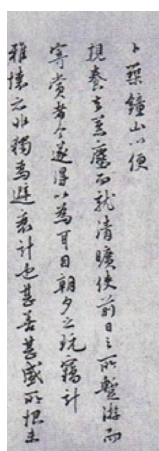 卜築鐘山以便
親養去囂塵而就清曠使前日之所蹔游而
寄賞者今遂得以為耳目朝夕之玩竊計
雅懷亦非獨為避衰計也甚善甚盛所恨未